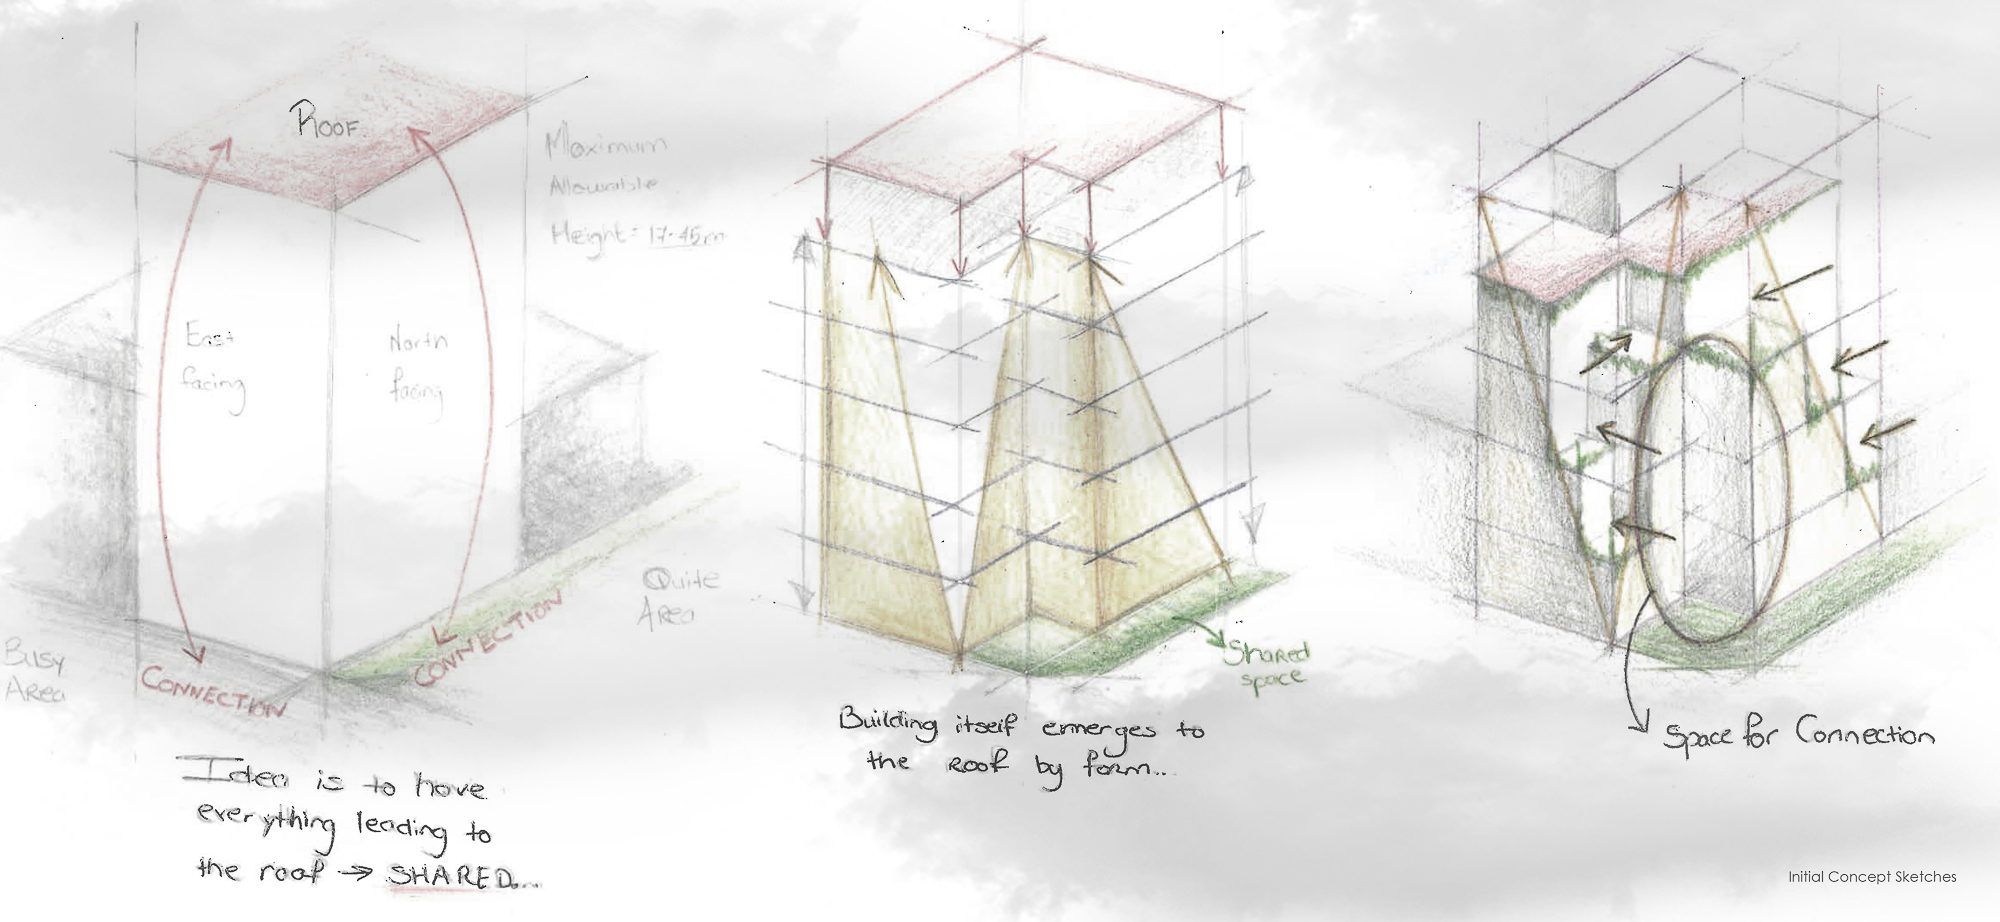 Roof
Maximum
Allowable
Height = 17.45m
East
facing
North
facing
Busy
Area
Quite
Area
CONNECTION
CONNECTION
Idea is to have
everything leading to
the roof → SHARED...
Shared
space
Building itself emerges to
the roof by form..
Space for Connection
Initial Concept Sketches